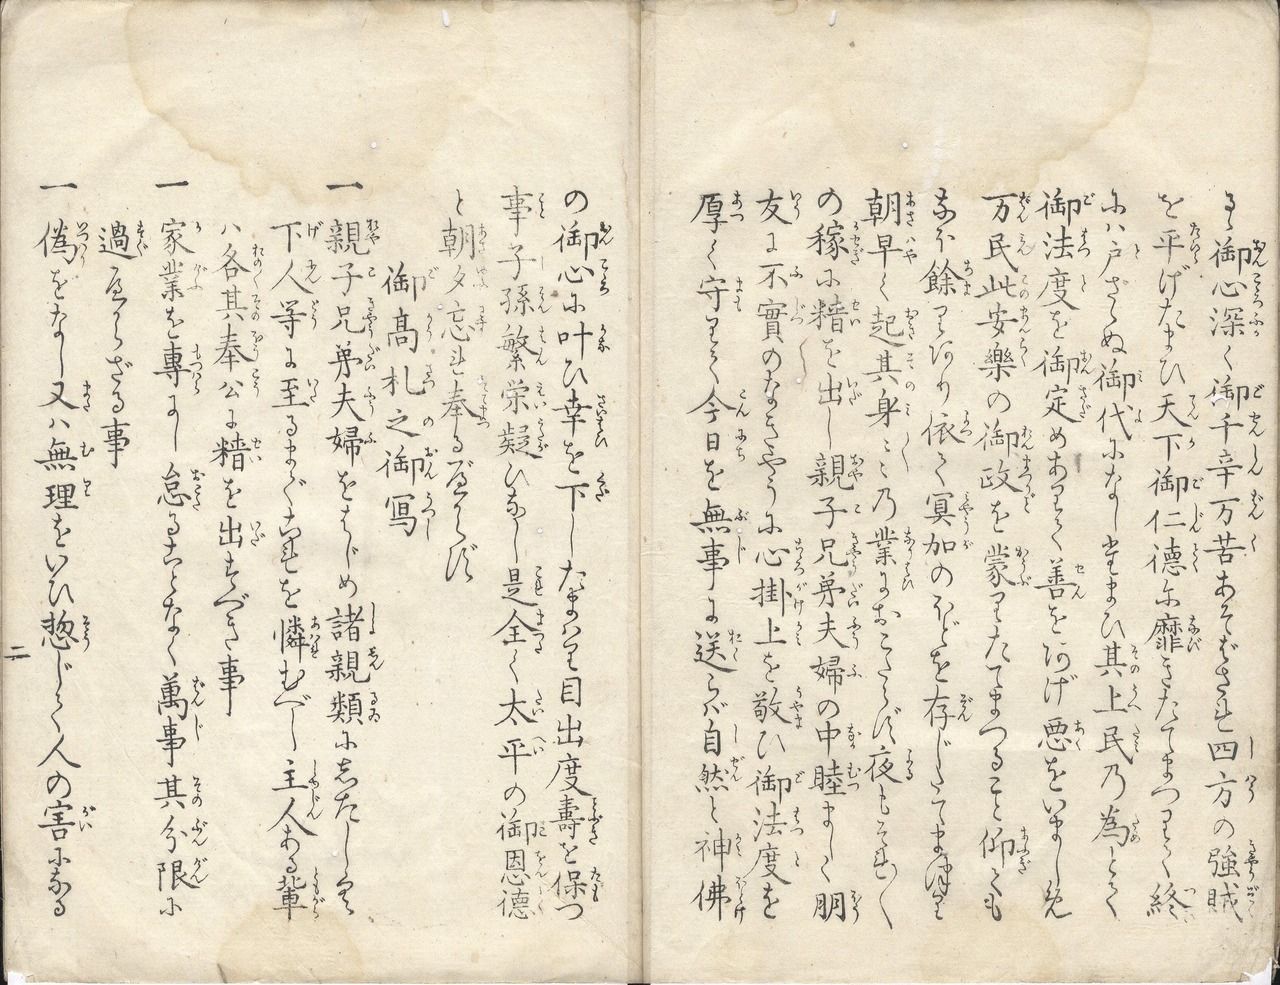 る御心深く御千辛万苦あそばされ四方の強賊
を平げたまひ天下御仁徳に靡きたてまつりて終
には戸ざゝぬ御代になしたまひ其上民乃為とて
御法度を御定めありて善をあげ悪をいましめ
万民此安楽の御政を蒙りたてまつること仰ても
なほ餘りあり依て冥加のほどを存じたてまつり
朝早く起其身〳〵乃業におこたらず夜もそれ〳〵
の稼に精を出し親子兄弟夫婦の中睦ましく朋
友に不實のなきやうに心掛上を敬ひ御法度を
厚く守りて今日を無事に送らば自然と神佛
の御心に叶ひ幸を下したまはり目出度壽を保つ
事子孫繁栄疑ひなし是全く太平の御恩徳
と朝夕忘れ奉るべからず
御高札之御写
一親子兄弟夫婦をはじめ諸親類にしたしく
下人等に至るまでこれを憐むべし主人ある輩
ハ各其奉公に精を出すべき事
一家業を専にし怠ることなく萬事其分限に
過べからざる事
一偽をなし又ハ無理をいひ惣じて人の害になる
二